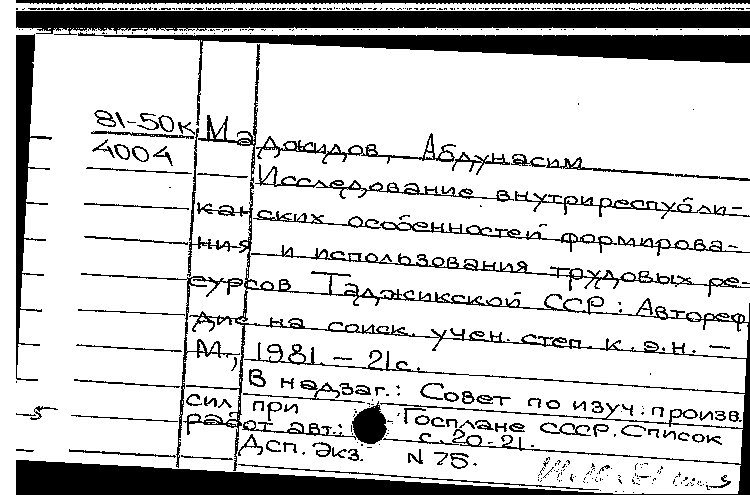 81-50к
4004
Маджидов, Абдунасим
Исследование внутриреспубли-
канских особенностей формирова-
ния и использования трудовых ре-
сурсов Таджикской ССР: Автореф
дис. на соиск. учен. степ. к.э.н. –
М., 1981. – 21с.
В надзаг.: Совет по изуч. произв.
сил при Госплане СССР. Список
работ авт.: с. 20-21.
Дсп. Экз. N 75.